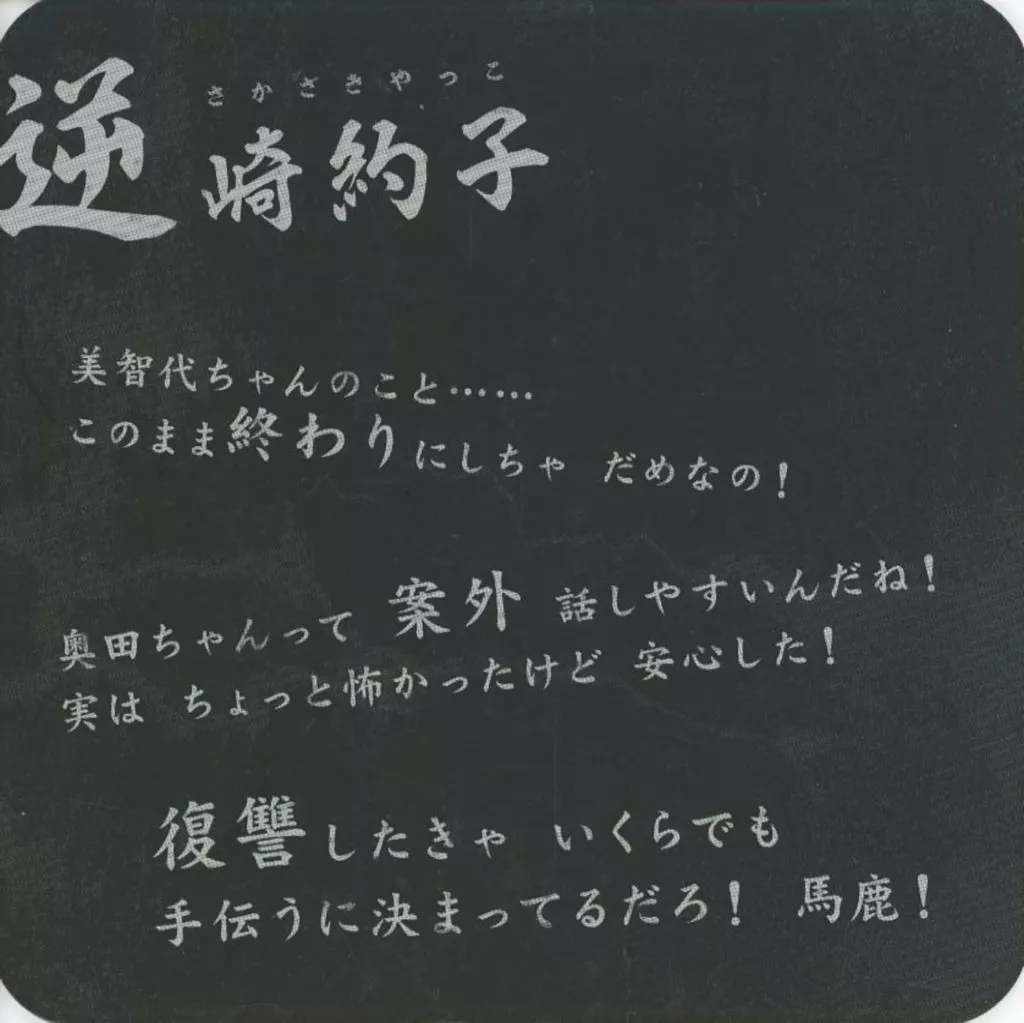 さかざきやっこ
逆崎約子
美智代ちゃんのこと……
このまま終わりにしちゃ だめなの!
奥田ちゃんって 案外 話しやすいんだね!
実は ちょっと怖かったけど 安心した!
復讐したきゃ いくらでも
手伝うに決まってるだろ! 馬鹿!